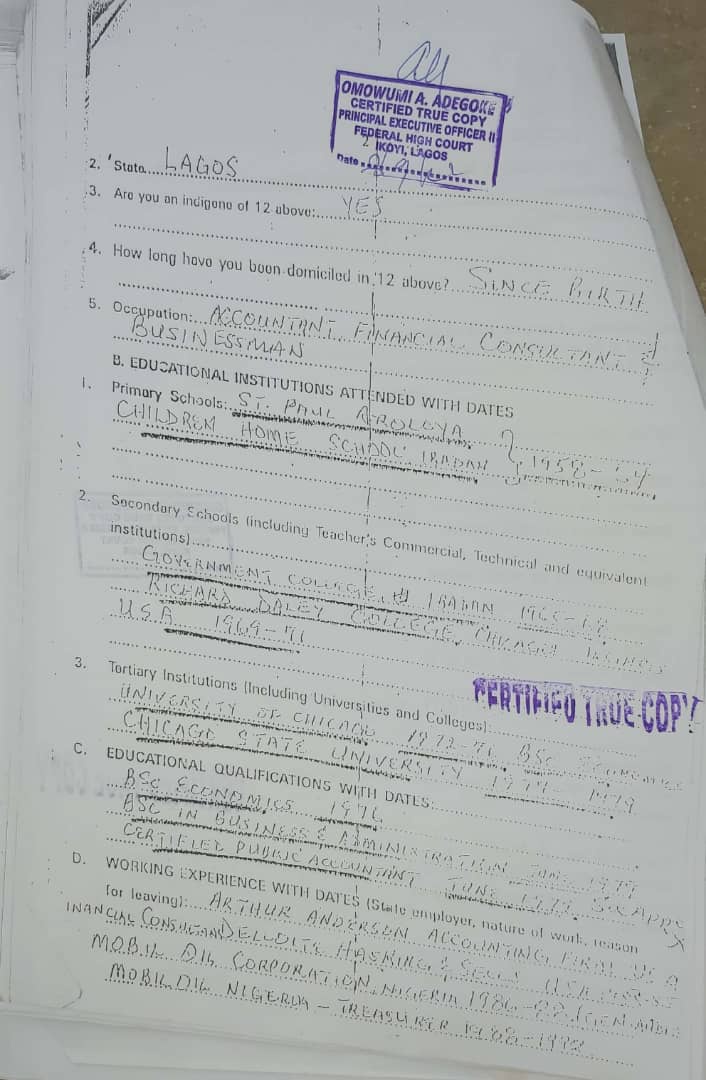 OMOWUMI A. ADEGOKE
CERTIFIED TRUE COPY
PRINCIPAL EXECUTIVE OFFICER II
FEDERAL HIGH COURT
IKOYI, LAGOS
Date
2. State LAGOS
3. Are you an indigene of 12 above: YES
4. How long have you been domiciled in 12 above? SINCE BIRTH
5. Occupation: ACCOUNTANT, FINANCIAL CONSULTANT &
BUSINESSMAN
B. EDUCATIONAL INSTITUTIONS ATTENDED WITH DATES
1. Primary Schools: ST. PAUL AROLOYA
CHILDREN HOME SCHOOL IBADAN
2. Secondary Schools (including Teacher's Commercial, Technical and equivalent
institutions)
GOVERNMENT COLLEGE, IBADAN
RICHARD DALEY COLLEGE, CHICAGO ILLINOIS
U.S.A 1969-71
3. Tertiary Institutions (Including Universities and Colleges):
CERTIFIED TRUE COPY
UNIVERSITY OF CHICAGO 1972-76 BSc ECONOMICS
CHICAGO STATE UNIVERSITY 1979
C. EDUCATIONAL QUALIFICATIONS WITH DATES:
BSc ECONOMICS 1976
BSC IN BUSINESS & ADMINISTRATION JUNE 1979
CERTIFIED PUBLIC ACCOUNTANT JUNE 1979.
D. WORKING EXPERIENCE WITH DATES (State employer, nature of work, reason
for leaving): ARTHUR ANDERSON ACCOUNTING FIRM USA
DELLOITE HASKING & SELLS USA
MOBIL OIL CORPORATION, NIGERIA 1986-88
MOBIL OIL NIGERIA - TREASURER 1988-1992